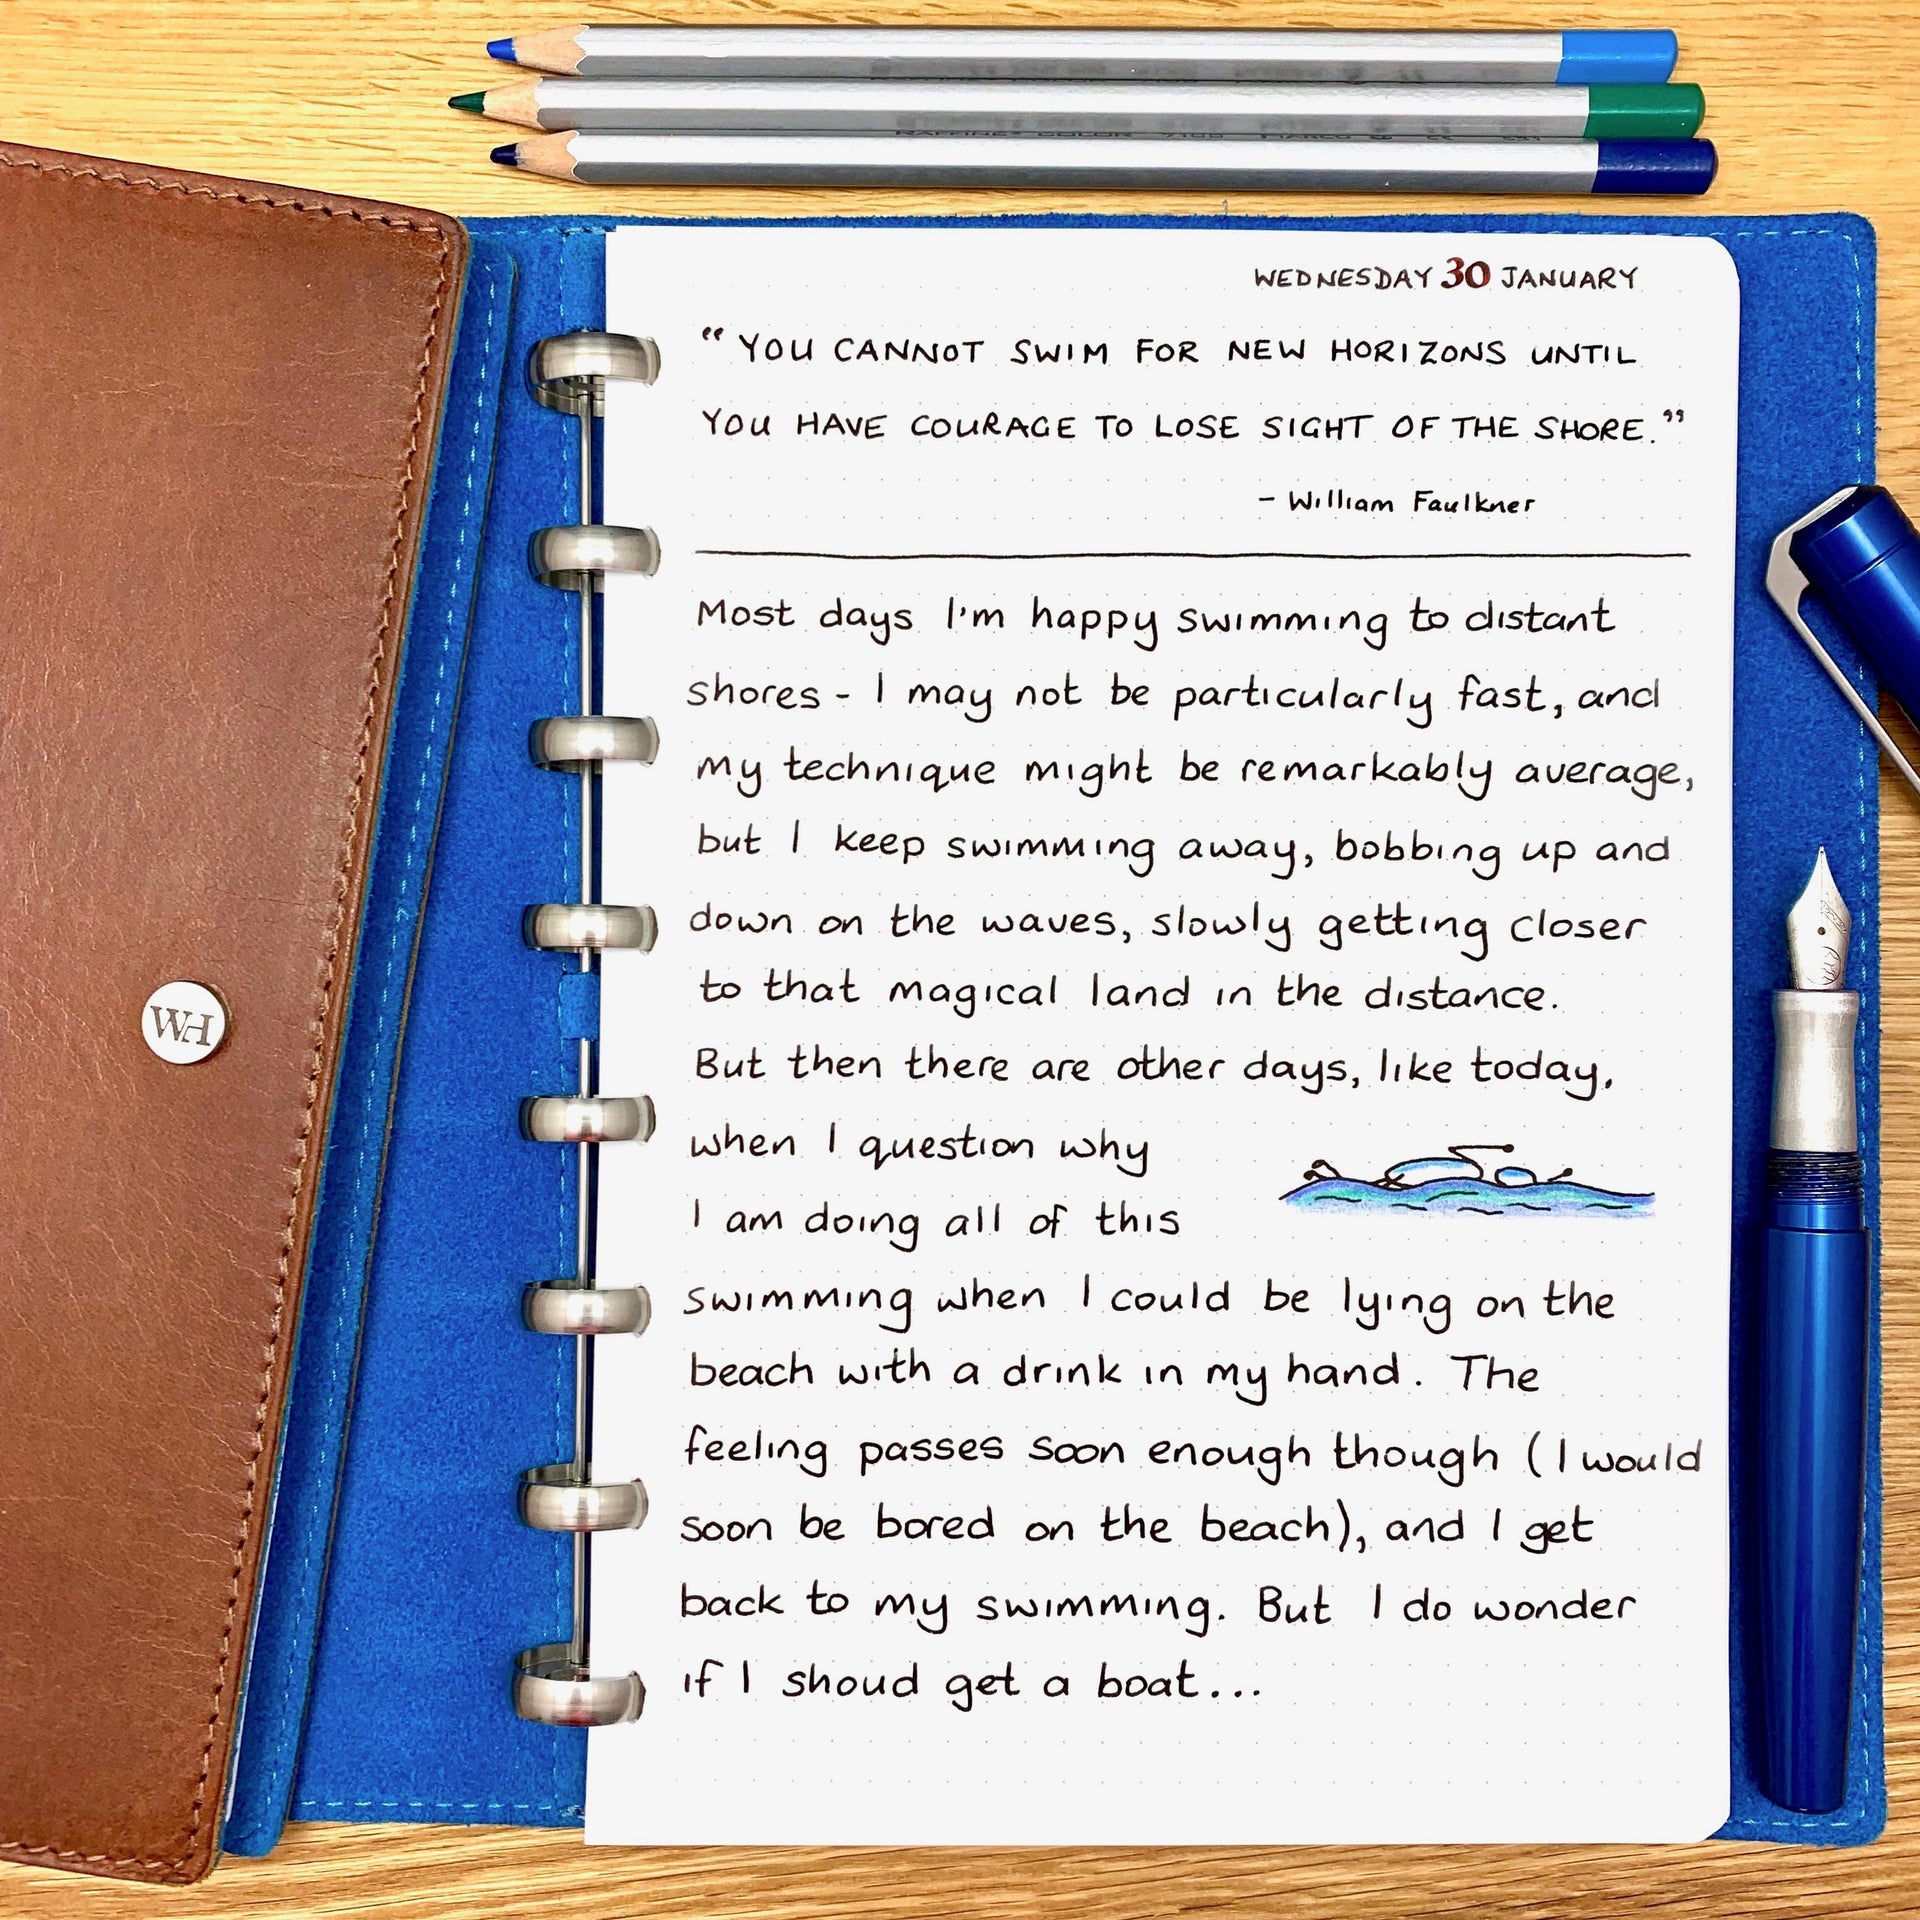 WEDNESDAY 30 JANUARY
“ YOU CANNOT SWIM FOR NEW HORIZONS UNTIL
YOU HAVE COURAGE TO LOSE SIGHT OF THE SHORE.”
- William Faulkner
Most days I'm happy swimming to distant
shores - I may not be particularly fast, and
my technique might be remarkably average,
but I keep swimming away, bobbing up and
down on the waves, slowly getting closer
to that magical land in the distance.
But then there are other days, like today,
when I question why
I am doing all of this
swimming when I could be lying on the
beach with a drink in my hand. The
feeling passes soon enough though (I would
soon be bored on the beach), and I get
back to my swimming. But I do wonder
if I shoud get a boat...
WH